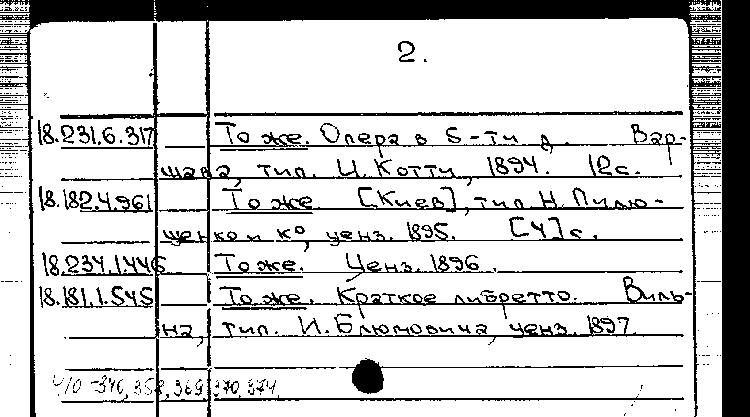 2.
18.231.6.317 То же. Опера в 5-ти д. Вар-
шава, тип. И. Котти, 1894. 12 с.
18.182.4.961 То же. [Киев], тип. Н. Пилю-
щенко и К⁰, ценз. 1895. [4] с.
18.234.1.446 То же. Ценз. 1896.
18.181.1.545 То же. Краткое либретто. Виль-
на, тип. И. Блюмовича, ценз. 1897.
369, 370, 374.